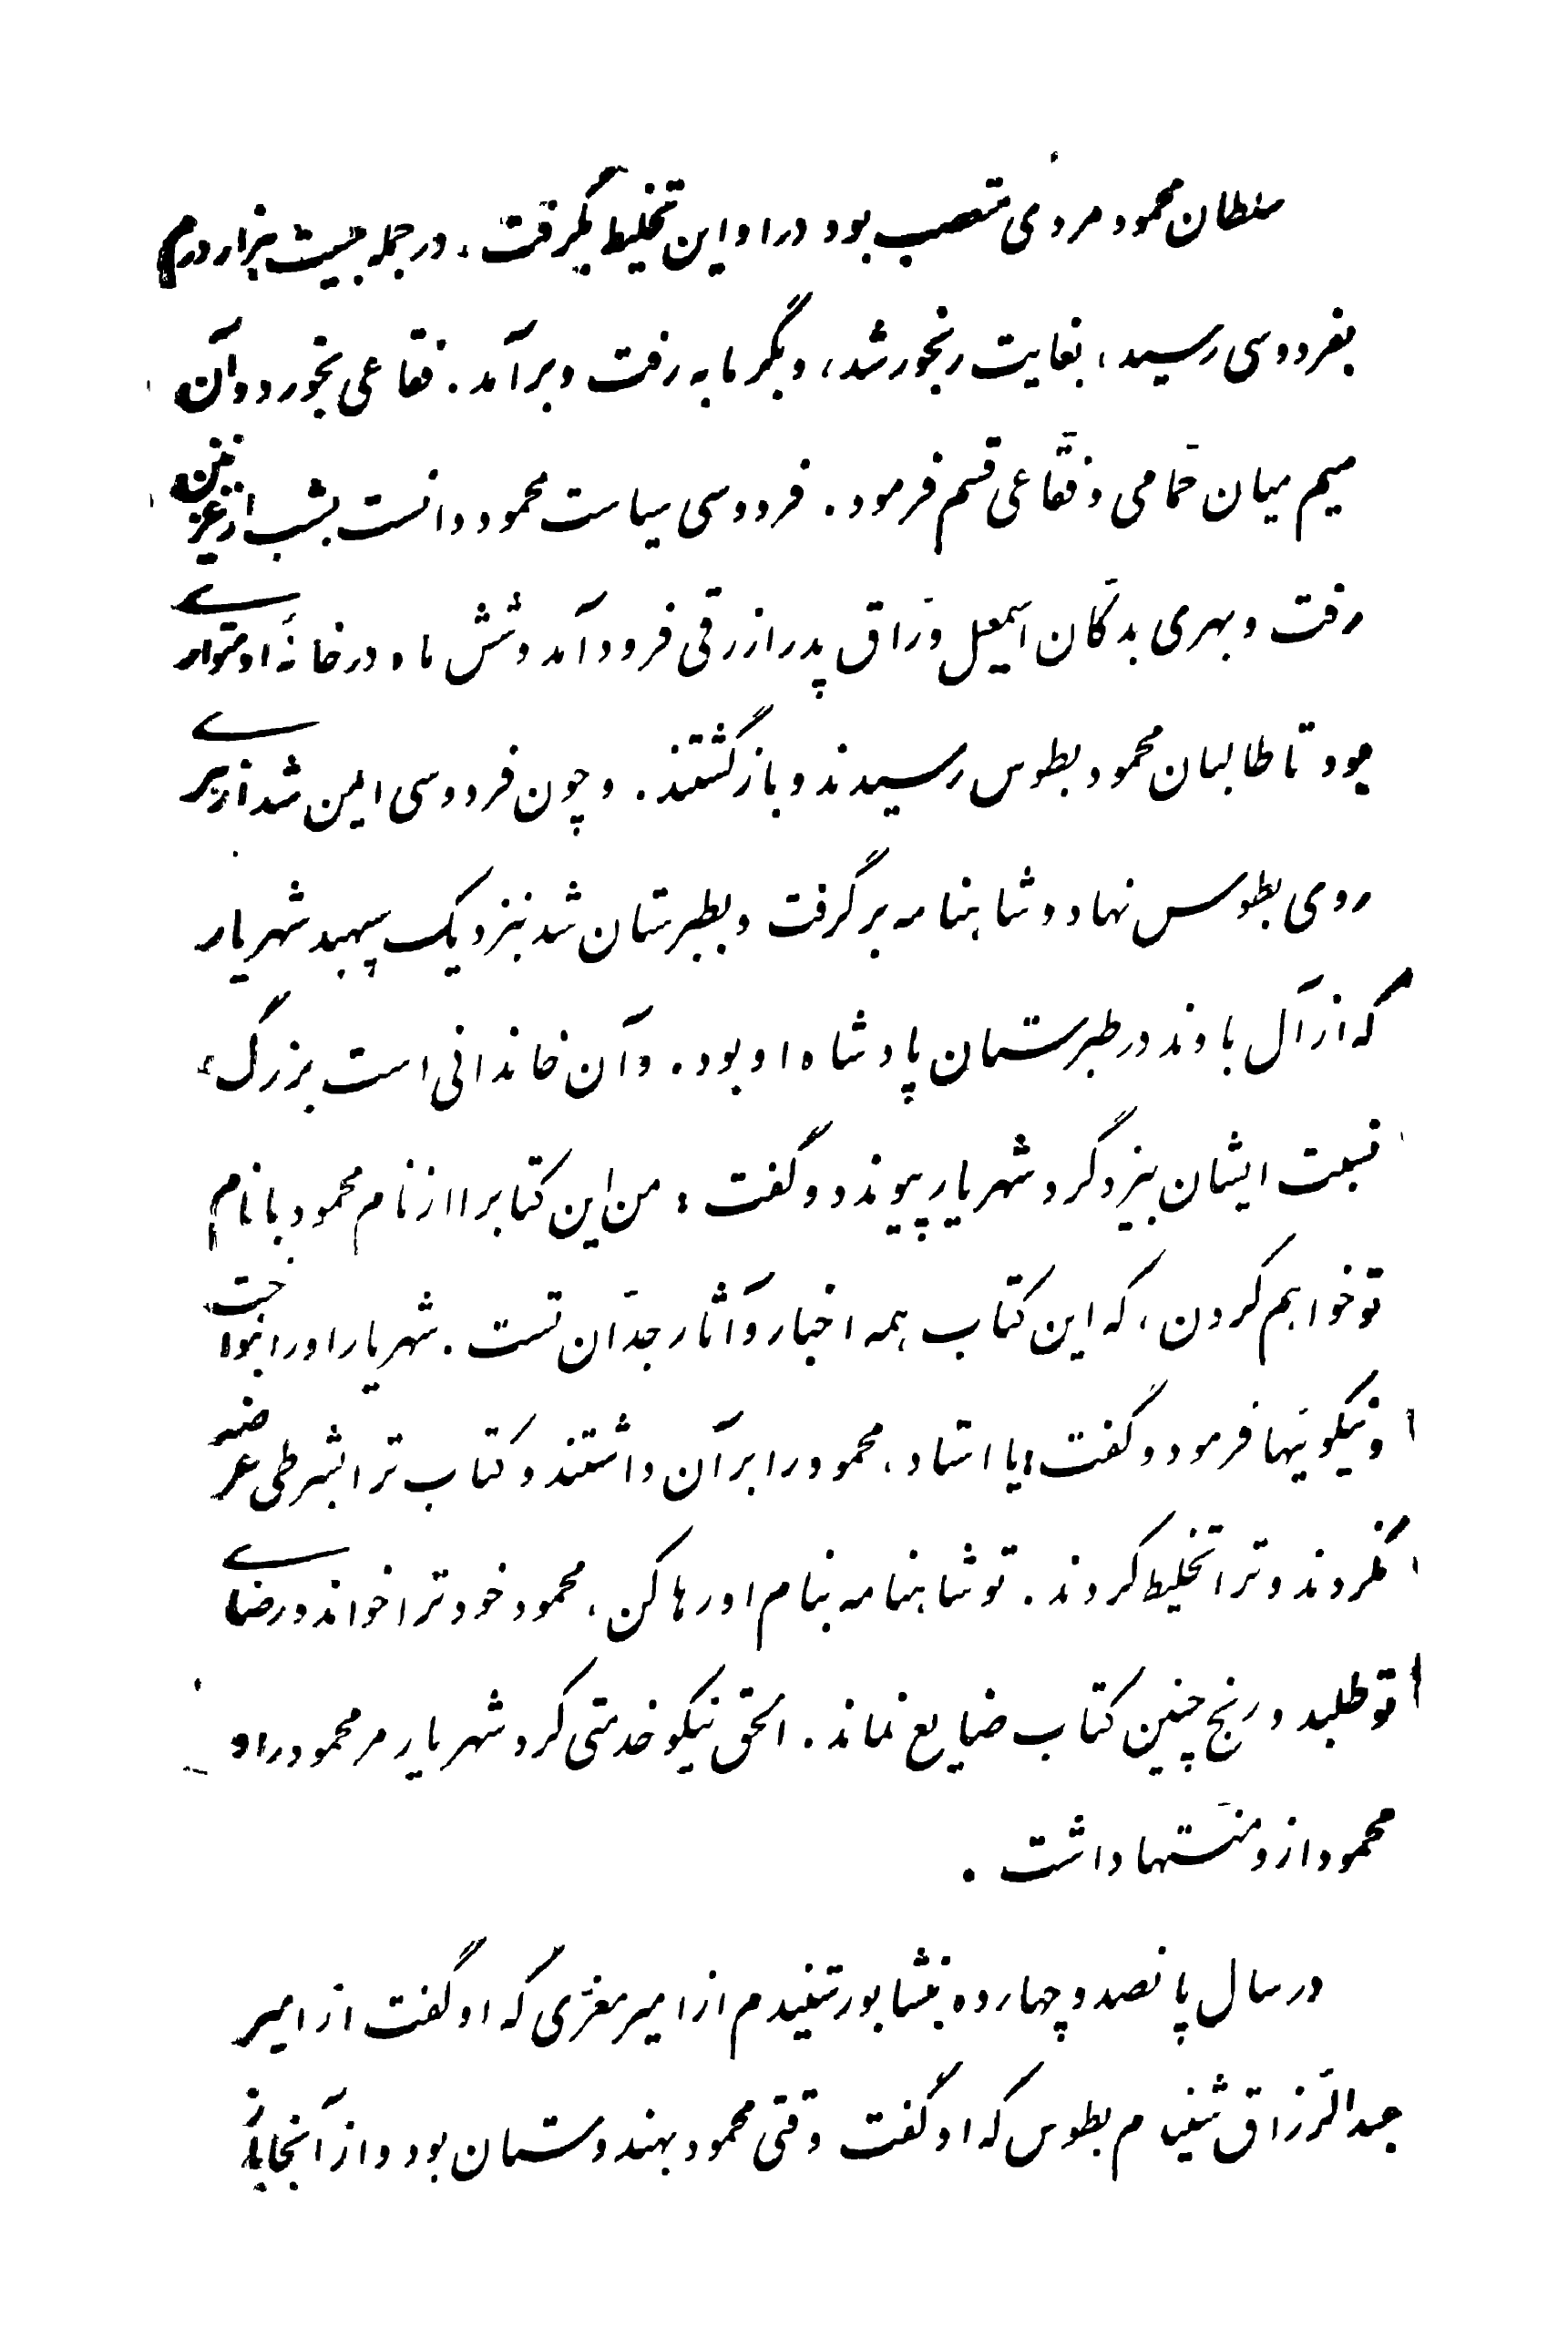 سلطان محمود مردی متعصب بود در او این تخلیط بگرفت، در جمله بیست هزار درم
بفردوسی رسید، بغایت رنجور شد، و بگرمابه رفت و برآمد. فقاعی بخورد و آن
سیم میان حمّامی و فقّاعی قسم فرمود. فردوسی سیاست محمود دانست بشب از غزنین
رفت و بهری بدکّان اسمعیل ورّاق پدر ازرقی فرود آمد و شش ماه در خانهٔ او متواری
بود تا طالبان محمود بطوس رسیدند و بازگشتند. و چون فردوسی ایمن شد از هری
روی بطوس نهاد و شاهنامه برگرفت و بطبرستان شد بنزدیک سپهبد شهریار
که از آل باوند در طبرستان پادشاه او بود. و آن خاندانی است بزرگ،
نسبت ایشان بیزدگرد شهریار پیوندد و گفت: من این کتابرا از نام محمود با نام
تو خواهم کردن، که این کتاب همه اخبار و آثار جدّان تست. شهریار او را بنواخت
و نیکوئیها فرمود و گفت: یا استاد، محمود را بر آن داشتند و کتاب ترا بشرطی عرضه
نکردند و ترا تخلیط کردند. تو شاهنامه بنام او رها کن، محمود خود ترا خواند و رضای
تو طلبد و رنج چنین کتاب ضایع نماند. الحق نیکو خدمتی کرد شهریار مر محمود را و
محمود ازو منّتها داشت.
در سال پانصد و چهارده بنشابور شنیدم از امیر معزّی که او گفت از امیر
عبدالرّزاق شنیدم بطوس که او گفت وقتی محمود بهندوستان بود و از آنجا باز